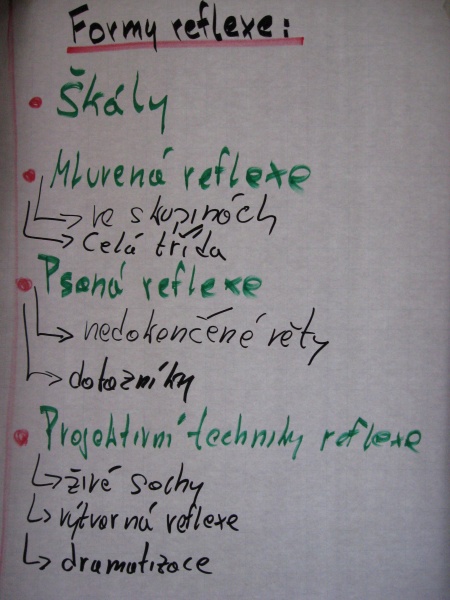 Formy reflexe:
• Škály
• Mluvená reflexe
ve skupinách
Celá třída
• Psaná reflexe
nedokončené věty
dotazníky
• Projektivní techniky reflexe
živé sochy
výtvorná reflexe
dramatizace